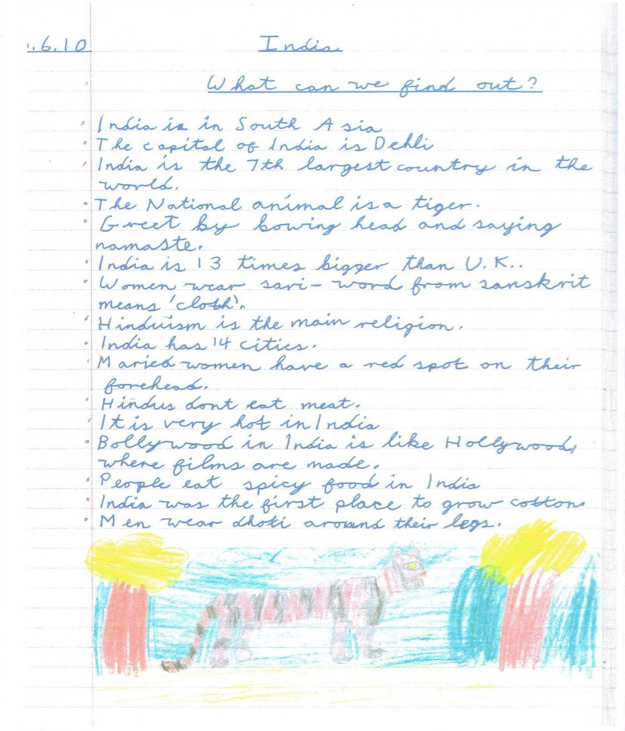 .6.10 India
What can we find out?
India is in South Asia
The capital of India is Dehli
India is the 7th largest country in the
world.
The National animal is a tiger.
Greet by bowing head and saying
namaste.
India is 13 times bigger than U.K..
Women wear sari - word from sanskrit
means 'cloth'.
Hinduism is the main religion.
India has 14 cities.
Maried women have a red spot on their
forehead.
Hindus dont eat meat.
It is very hot in India
Bollywood in India is like Hollywood,
where films are made.
People eat spicy food in India
India was the first place to grow cotton.
Men wear dhoti around their legs.